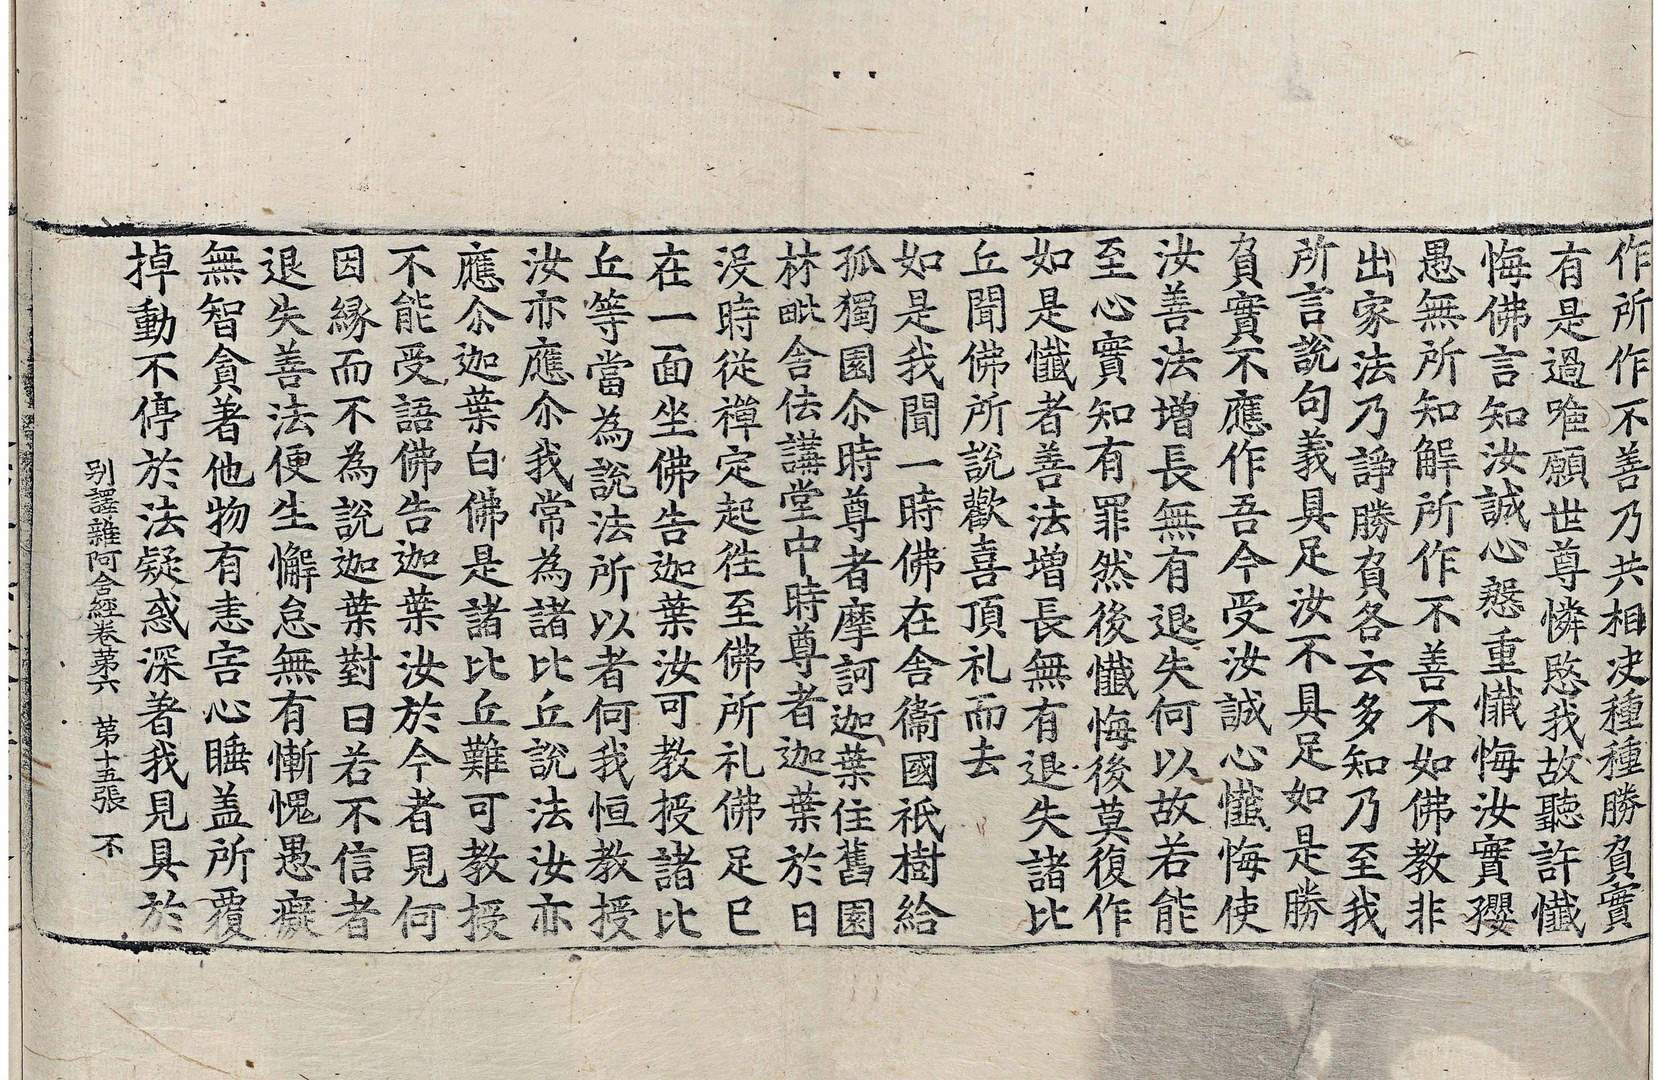 作所作不善乃共相决種種勝負實
有是過唯願世尊憐愍我故聽許懺
悔佛言知汝誠心慇重懺悔汝實孾
愚無所知解所作不善不如佛教非
出家法乃諍勝負各云多知乃至我
所言說句義具足汝不具足如是勝
負實不應作吾今受汝誠心懺悔使
汝善法增長無有退失何以故若能
至心實知有罪然後懺悔後莫復作
如是懺者善法增長無有退失諸比
丘聞佛所說歡喜頂礼而去
如是我聞一時佛在舍衞國祇樹給
孤獨園尒時尊者摩訶迦葉住舊園
林毗舍佉講堂中時尊者迦葉於日
没時從禪定起往至佛所礼佛足已
在一面坐佛告迦葉汝可教授諸比
丘等當為說法所以者何我恒教授
汝亦應尒我常為諸比丘說法汝亦
應尒迦葉白佛是諸比丘難可教授
不能受語佛告迦葉汝於今者見何
因緣而不為說迦葉對曰若不信者
退失善法便生懈怠無有慚愧愚癡
無智貪著他物有恚害心睡盖所覆
掉動不停於法疑惑深著我見具於
別譯雜阿含經卷第六 第十五張 不